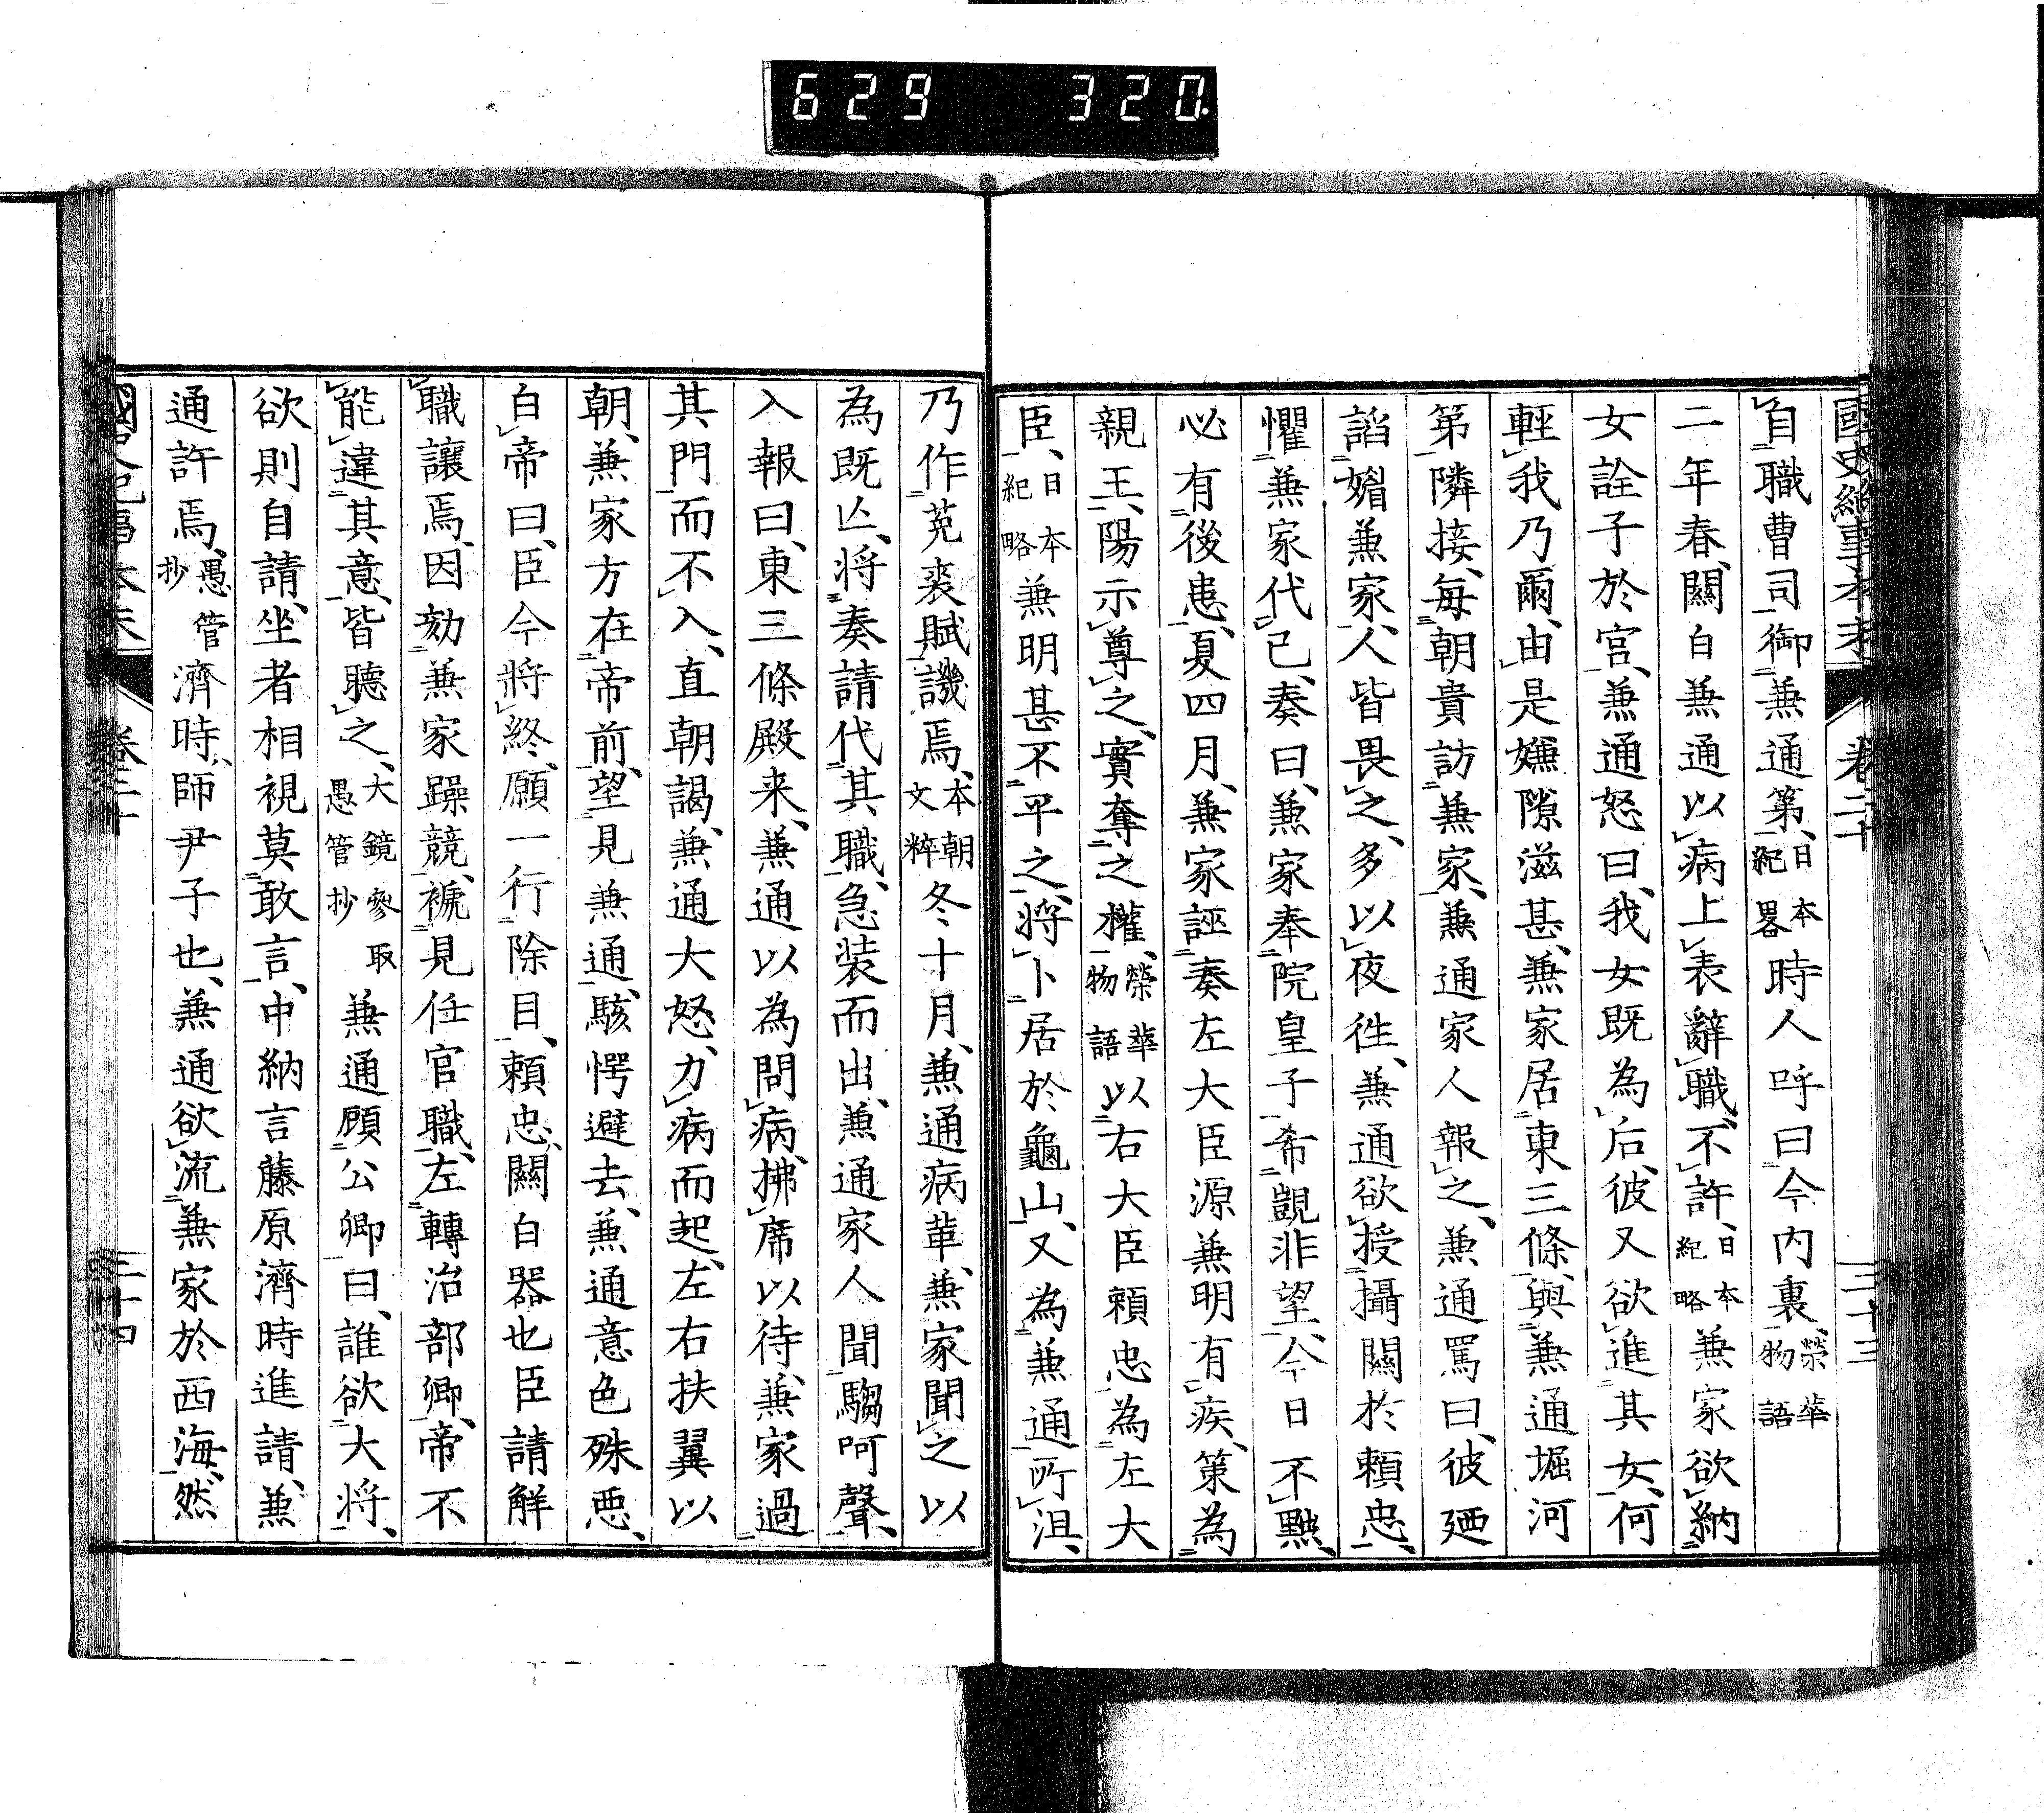 629 320.
國史紀事本末 卷二十 三十三
自職曹司御兼通第、日本紀畧時人呼曰今内裏、榮華物語
二年春、關白兼通以病上表辭職、不許、日本紀略兼家欲納
女詮子於宮、兼通怒曰、我女既為后、彼又欲進其女、何
輕我乃爾、由是嫌隙滋甚、兼家居東三條、與兼通堀河
第隣接、每朝貴訪兼家、兼通家人報之、兼通罵曰、彼廼
諂媚兼家、人皆畏之、多以夜往、兼通欲授攝關於賴忠、
懼兼家代已、奏曰、兼家奉院皇子希覬非望、今日不黜、
必有後患、夏四月、兼家誣奏左大臣源兼明有疾、策為
親王、陽示尊之、實奪之權、榮華物語以右大臣賴忠為左大
臣、日本紀略兼明甚不平之、將卜居於龜山、又為兼通所沮、
乃作莬裘賦譏焉、本朝文粹冬十月、兼通病革、兼家聞之以
為既亾、將奏請代其職、急装而出、兼通家人聞騶呵聲、
入報曰、東三條殿来、兼通以為問病、拂席以待、兼家過
其門而不入、直朝謁、兼通大怒、力病而起、左右扶翼以
朝、兼家方在帝前、望見兼通、駭愕避去、兼通意色殊惡、
白帝曰、臣今將終、願一行除目、賴忠、關白器也、臣請解
職讓焉、因劾兼家躁競、褫見任官職、左轉治部卿、帝不
能違其意、皆聽之、大鏡愚管抄參取兼通顧公卿曰、誰欲大將、
欲則自請、坐者相視莫敢言、中納言藤原濟時進請、兼
通許焉、愚管抄濟時、師尹子也、兼通欲流兼家於西海、然
卷二十 三十四